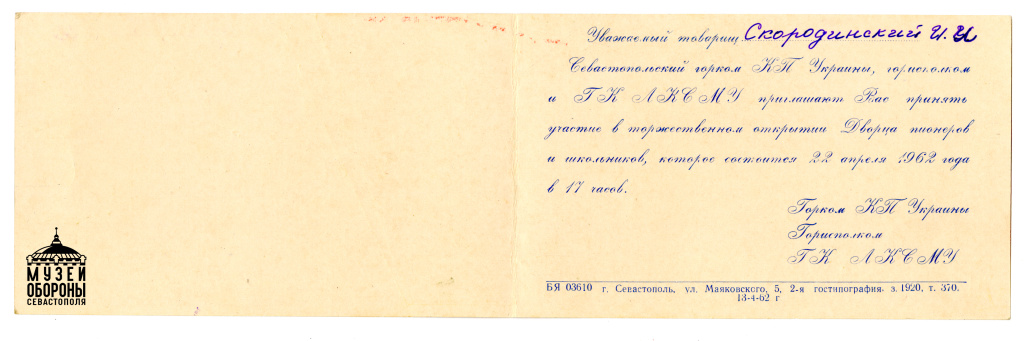 Уважаемый товарищ Скородинский И. И
Севастопольский горком КП Украины, горисполком
и ГК ЛКСМУ приглашают Вас принять
участие в торжественном открытии Дворца пионеров
и школьников, которое состоится 22 апреля 1962 года
в 17 часов.
Горком КП Украины
Горисполком
ГК ЛКСМУ
БЯ 03610 г. Севастополь, ул. Маяковского, 5, 2-я гостипография. з. 1920, т. 370.
13-4-62 г
МУЗЕЙ
ОБОРОНЫ
СЕВАСТОПОЛЯ